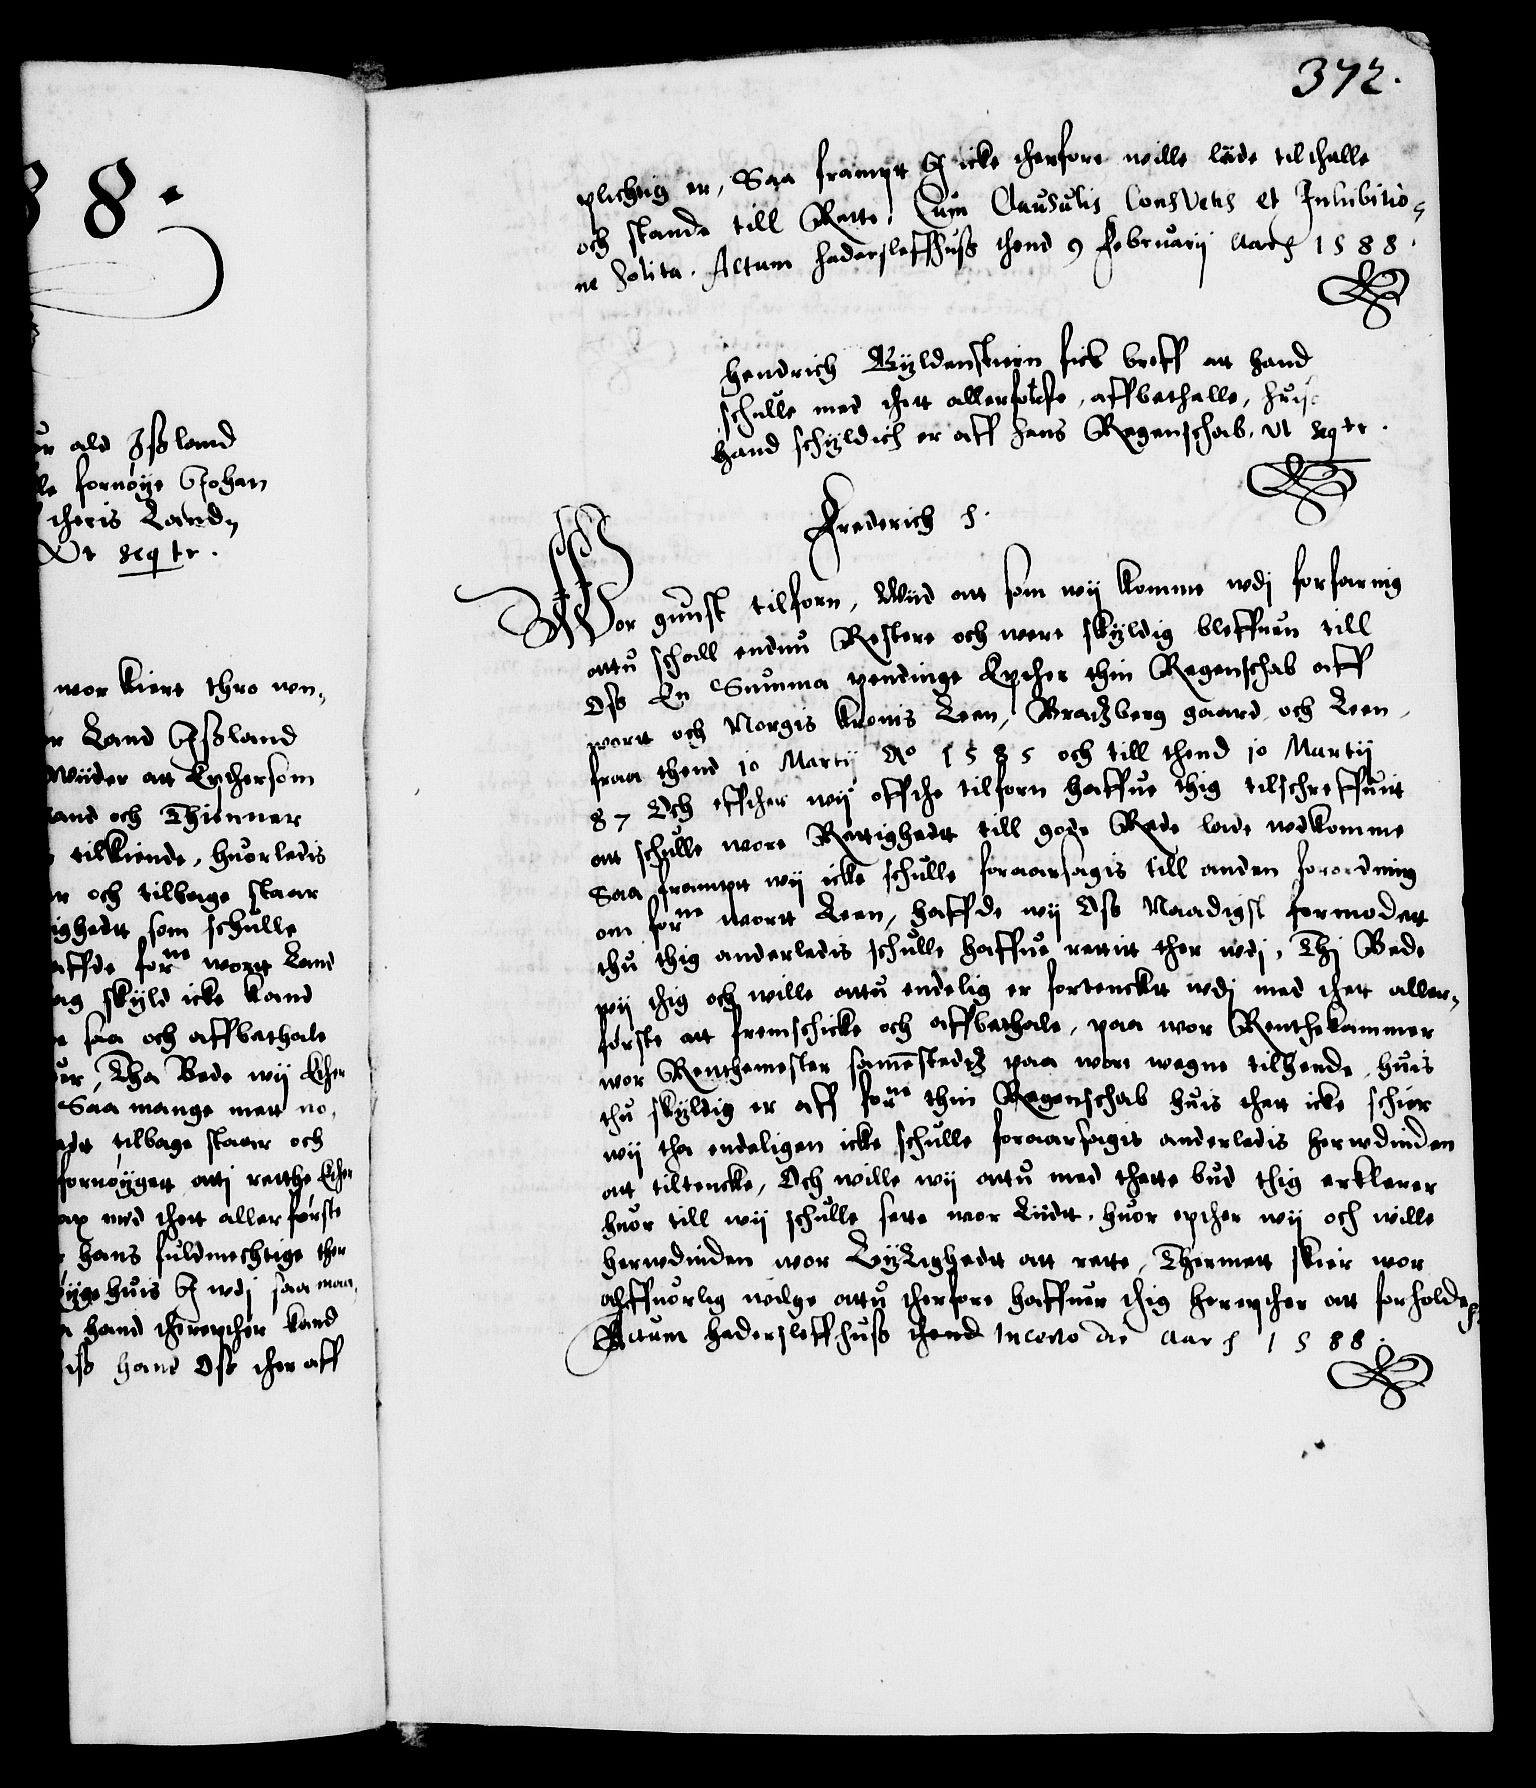 88.
ur ald Jßland
le fornøye Johan
theris Land,
Vt seqtr.
wor kiere thro wn,
er Land Jßland
Wiider att Epthersom
land och Thienner
tilkiende, huorledis
er och tilbage staar
ighedt som schulle
affde forne wortt Land
ag skyld icke kand
e saa och affbethale
uer, Tha Bede wij Ether
Saa mange mett no,
edt tilbage staar och
fornøygett atj retthe Ether
ap med thett allerførste
hans fuldmechtige ther
øyge huis J wdj saa man,
hand therepther kand
iß hand Oß ther aff
372.
plichtig er, Saa frampt J icke therfore wille lade tilthalle
och stande till Rette. Cum Clausulis Consvetis et Inhibitio,
ne Solita. Actum haderslethuß thend 9 Februarij Aar 1588.
Hendrich Gyldenstiern fick breff att hand
schulle med thett allerførste, affbethalle, huis
hand schyldich er aff hans Regenschab, Vt seqtr.
Frederich S.
Wor gunst tilforn, Wiid att som wij komme wdj forfaring
attu schall endnu Restere och were skyldig bleffuen till
Oß En Summa pendinge Epther thin Regenschab aff
wortt och Norgis Kronis Leen, Bratzberg gaard och Leen,
fraa thend 10 Martij Ao 1585 och till thend 10 Martij
87 Och effther wij offthe tilforn haffue thig tilschreffuit
att schulle wore Rettighedt till gode Rede lade wdkomme
Saa frampt wij icke schulle foraarsagis till anden forordning
om forne wortt Leen, haffde wij Oß Naadigst formodett
thu thig anderledis schulle haffue rettit ther wdj, Thj Bede
wij thig och wille attu endelig er fortencktt wdj med thett aller,
første att fremschicke och affbethale, paa wor Renthekammer
wor Renthemester samestedtz paa wore wegne tilhende, huis
thu skyldig er aff forne thin Regenschab huis thett icke schier
wij tha endeligen icke schulle foraarsagis anderledis herwdinden
att tiltencke, Och wille wij attu med thette bud thig erklerer
huor till wij schulle sette wor Liidt, huor epther wij och wille
herwdinden wor Lyligheedt att rette, Thermett skier wor
alffuorlig wilge attu therfore haffuer thig herepther att forholde,
Actum haderslethuß thend in coeto die Aar 1588.